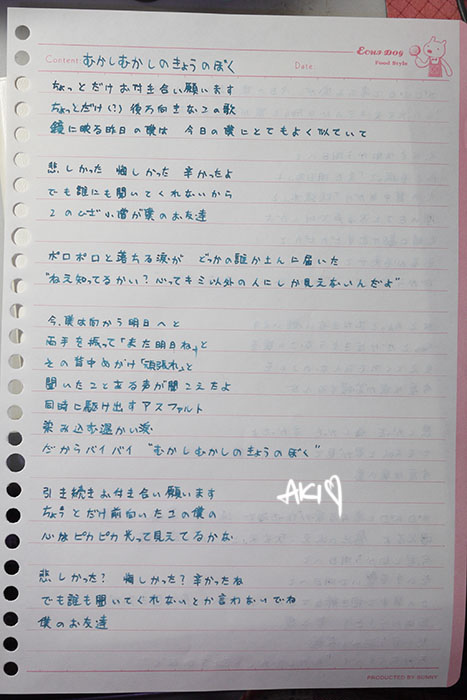 Ecus Dog
Food Style
Content: むかしむかしのきょうのぼく Date:
ちょっとだけお付き合い願います
ちょっとだけ(?)後ろ向きなこの歌
鏡に映る昨日の僕は 今日の僕にとてもよく似ていて
悲しかった 悔しかった 辛かったよ
でも誰にも聞いてくれないから
このひざ小僧が僕のお友達
ポロポロと落ちる涙が どっかの誰かさんに届いた
"ねえ知ってるかい?心ってキミ以外の人にしか見えないんだよ"
今、僕は向かう明日へと
両手を振って「また明日ね」と
その背中めがけ「頑張れ」と
聞いたことある声が聞こえたよ
同時に駆け出すアスファルト
染み込む温かい涙
だからバイバイ "むかしむかしのきょうのぼく"
引き続きお付き合い願います
AKI♡
ちょっとだけ前向いたこの僕の
心はピカピカ光って見えてるかな
悲しかった? 悔しかった?辛かったね
でも誰も聞いてくれないとか言わないでね
僕のお友達
PRODUCTED BY SUNNY